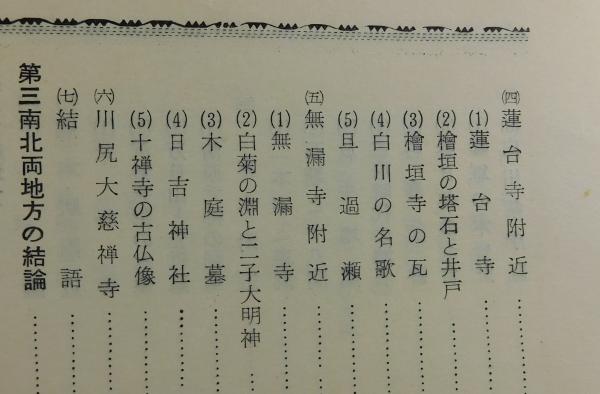 ㈣蓮台寺附近
(1)蓮台寺
(2)檜垣の塔石と井戸
(3)檜垣寺の瓦
(4)白川の名歌
(5)旦過瀬
㈤無漏寺附近
(1)無漏寺
(2)白菊の淵と二子大明神
(3)木庭墓
(4)日吉神社
(5)十禅寺の古仏像
㈥川尻大慈禅寺
㈦結語
第三南北両地方の結論